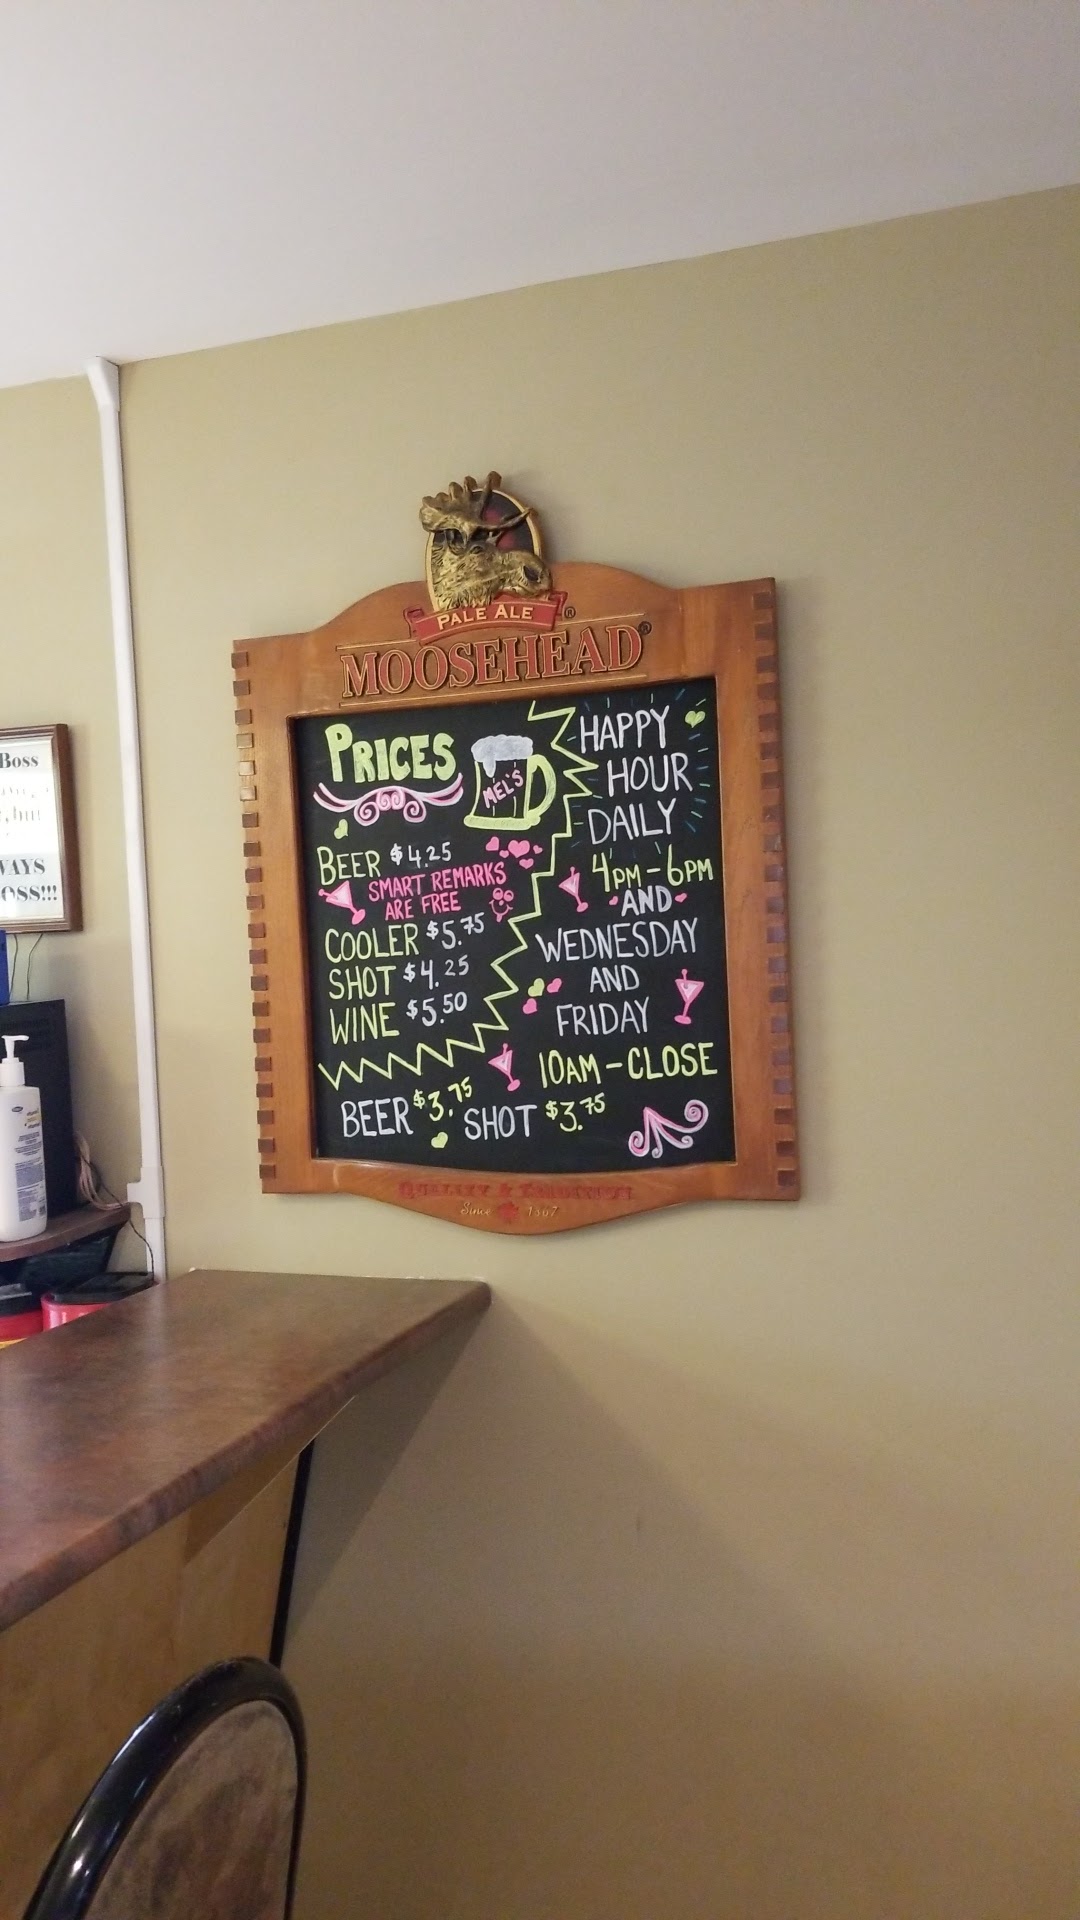 PALE ALE ®
MOOSEHEAD®
PRICES
MEL'S
BEER $4.25
SMART REMARKS
ARE FREE
COOLER $5.75
SHOT $4.25
WINE $5.50
HAPPY
HOUR
DAILY
4PM-6PM
AND
WEDNESDAY
AND
FRIDAY
10AM-CLOSE
BEER $3.75 SHOT $3.75
QUALITY & TRADITION
Since 1867
Boss
but
WAYS
OSS!!!